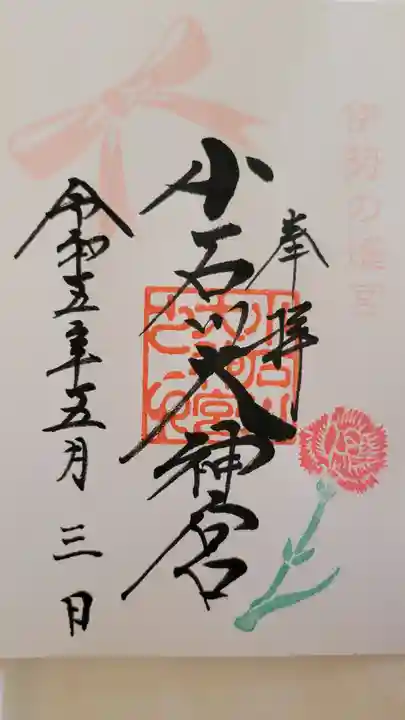 伊勢の遥宮
奉拝
小石川大神宮
令和五年五月三日